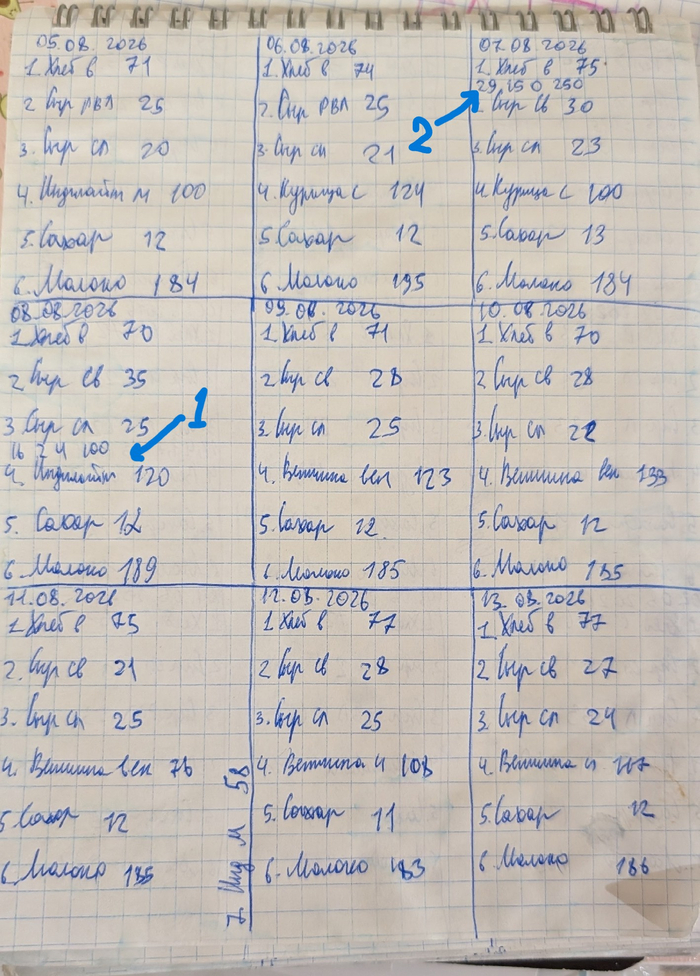 05.08.2026
1. Хлеб в 71
2 Сыр рвл 25
3. Сыр сл 20
4. Индилайт м 100
5. Сахар 12
6. Молоко 184
06.08.2026
1. Хлеб в 74
2. Сыр рвл 25
3. Сыр сл 21
4. Курица с 124
5. Сахар 12
6 Молоко 195
2
07.08.2026
1. Хлеб в 75
29 150 250
2 Сыр св 30
3. Сыр сл 23
4 Курица с 100
5. Сахар 13
6. Молоко 184
08.08.2026
1 Хлеб в 70
2 Сыр св 35
3 Сыр сл 25
1
16 24 100
4. Индилайт 120
5. Сахар 12
6. Молоко 189
09.08.2026
1. Хлеб в 71
2 Сыр св 28
3. Сыр сл 25
4. Ветчина вел 123
5. Сахар 12
6. Молоко 185
10.08.2026
1. Хлеб в 70
2 Сыр св 28
3. Сыр сл 22
4. Ветчина вел 133
5. Сахар 12
6. Молоко
11.08.2026
1 Хлеб в 75
2. Сыр св 21
3. Сыр сл 25
4. Ветчина вел 76
5. Сахар 12
6 Молоко
7. Инд м 58
12.08.2026
1. Хлеб в 77
2 Сыр св 28
3. Сыр сл 25
4. Ветчина 108
5. Сахар 11
6. Молоко 183
13.08.2026
1. Хлеб в 77
2 Сыр св 27
3 Сыр сл 24
4. Ветчина
5. Сахар 12
6 Молоко 186